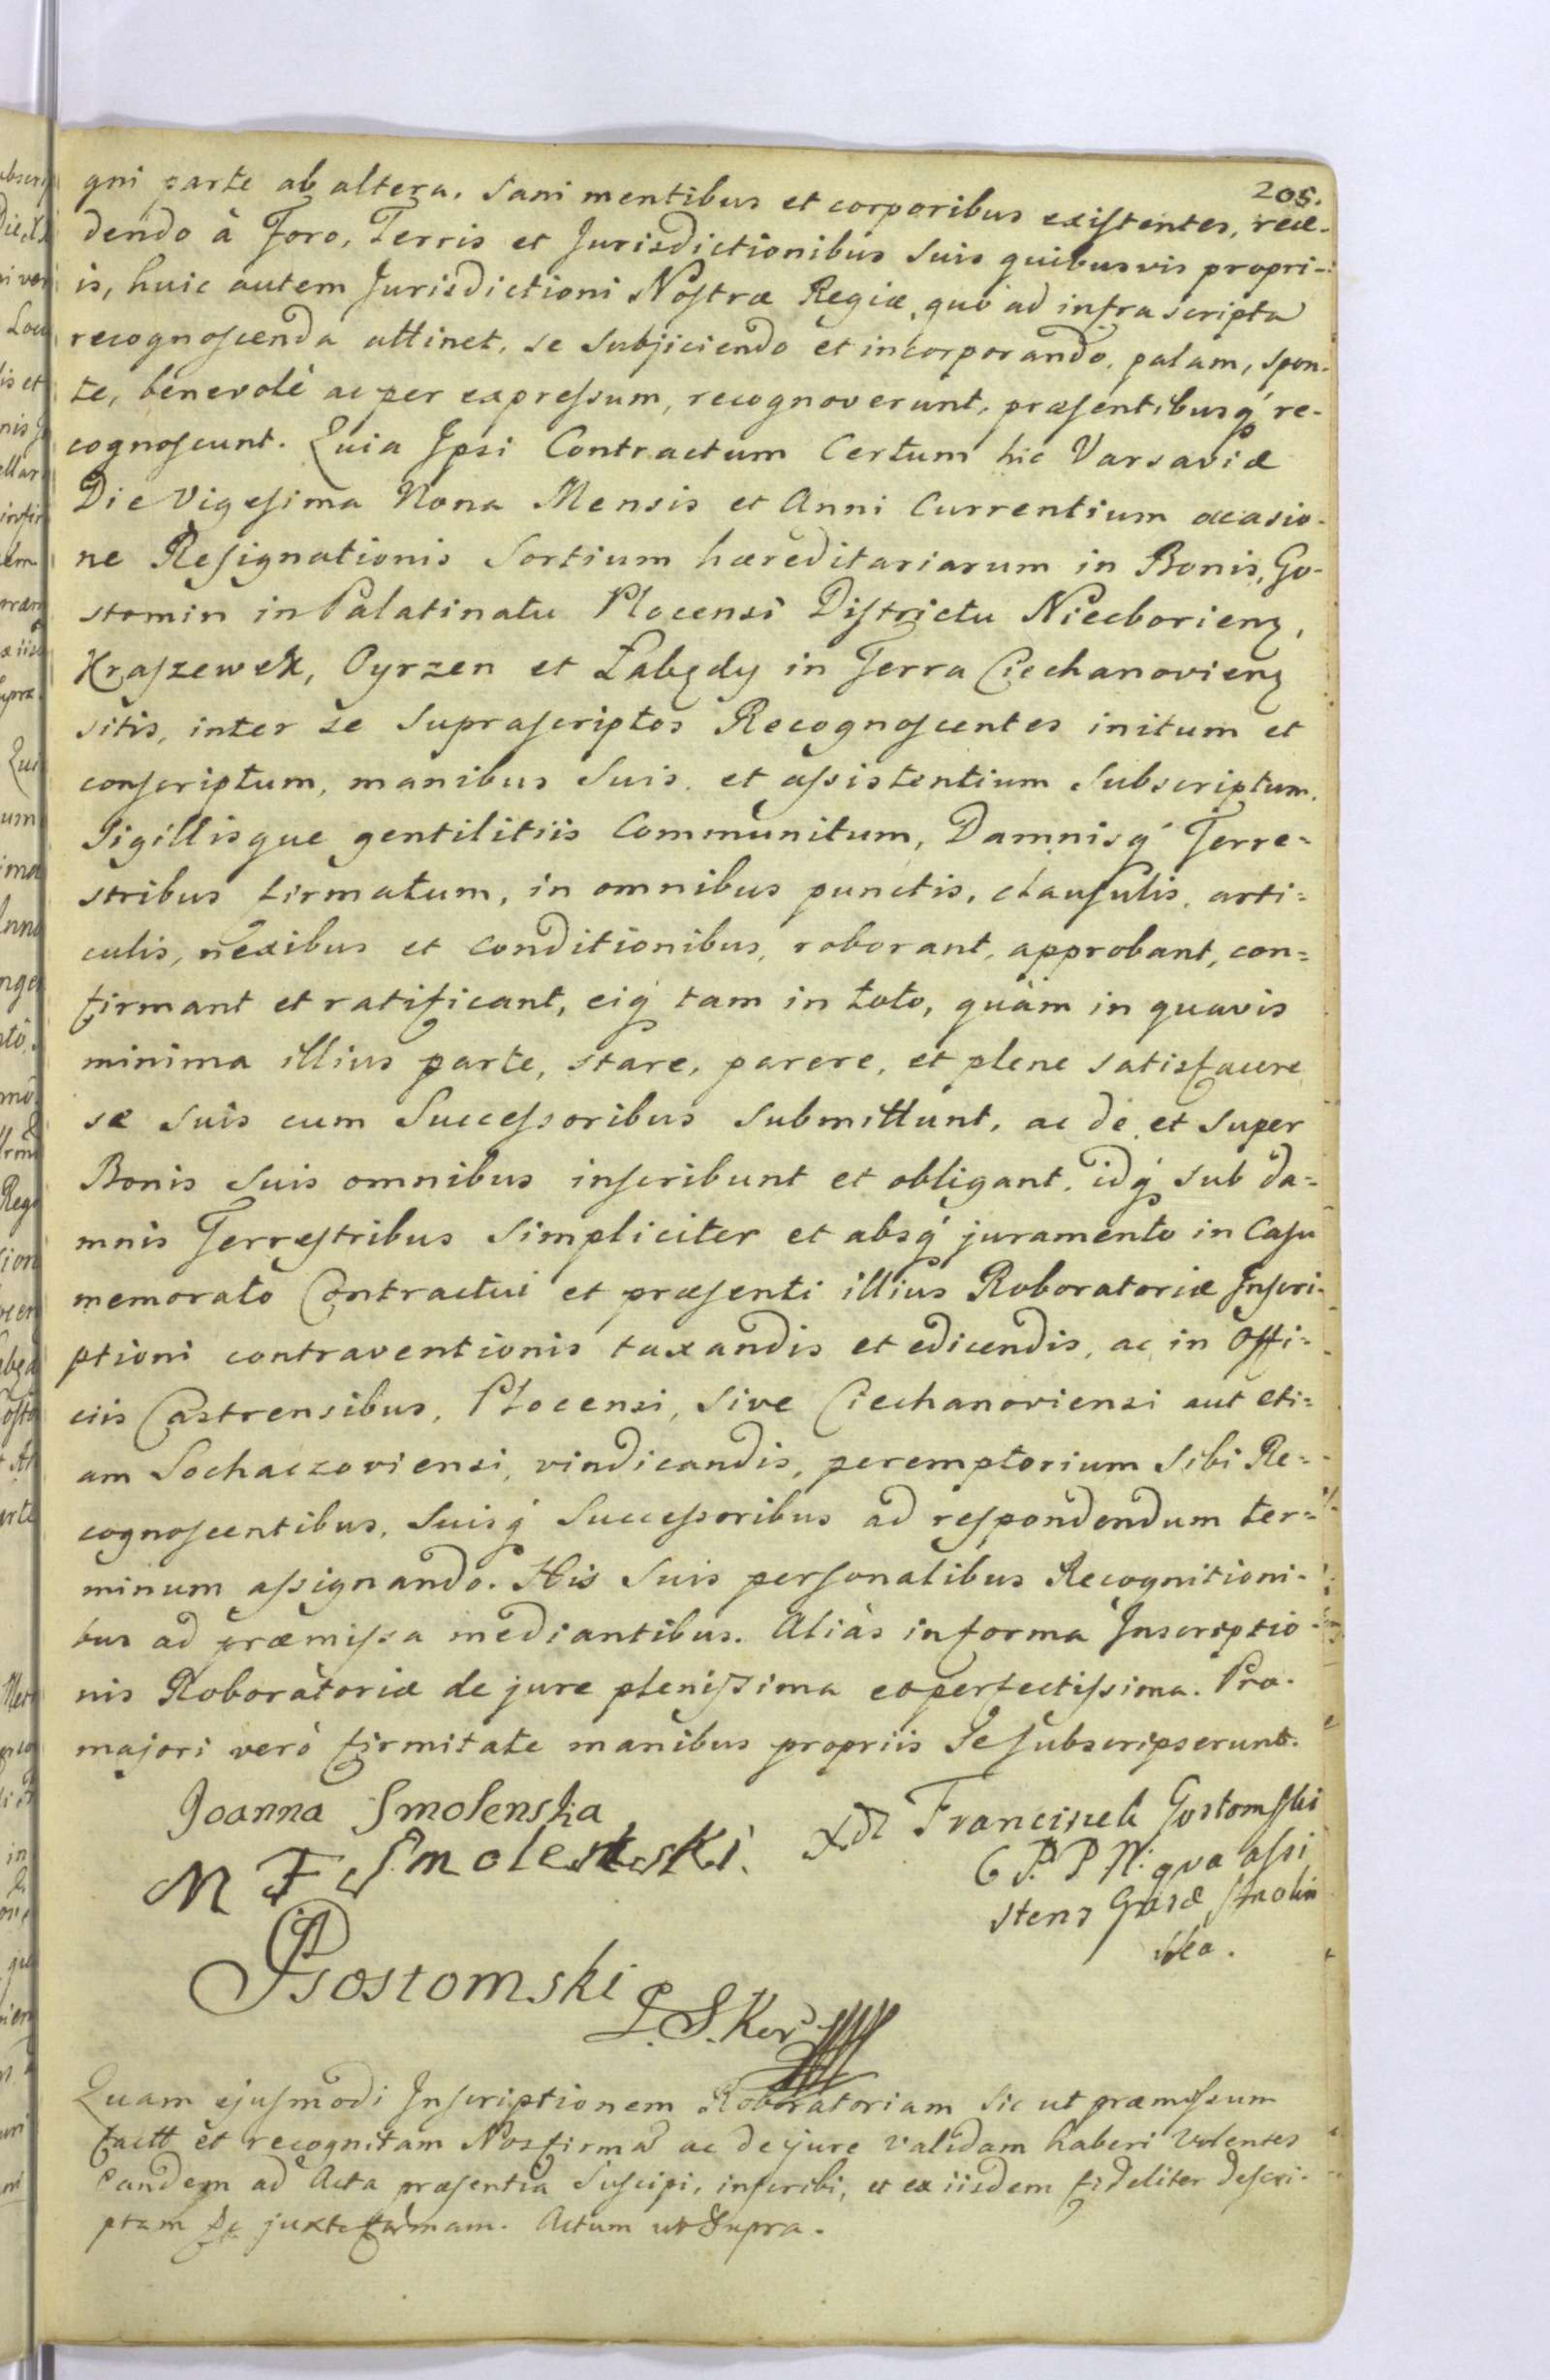 205.
gni parte ab altera. Sani mentibus et corporibus existentes, rece-
dendo à Foro, Terris et Jurisdictionibus suis quibusvis propri-
is, huic autem Jurisdictioni Nostræ Regiæ, quò ad infra scripta
recognoscenda attinet, se subjiciendo et incorporando, palam, spon-
te, benevolè ac per expressum, recognoverunt, præsentibusq́ re-
cognoscunt. Quia Ipsi Contractum Certum hic Varsaviæ
Die Vigesima Nona Mensis et Anni Currentium occasio-
ne Resignationis Sortium hæreditariarum in Bonis, Go-
stomin in Palatinatu Plocensi Districtu Niedborienȝ,
Kraszewek, Pyrzen et Łabędy in Terra Ciechanovienȝ
sitis, inter se suprascriptos Recognoscentes initum et
conscriptum, manibus suis et assistentium subscriptum,
Sigillisque gentilitiis Communitum, Damnisq́ Terre=
stribus firmatum, in omnibus punctis, clausulis, arti=
culis, nexibus et conditionibus, roborant, approbant, con=
firmant et ratificant, eiq́ tam in toto, quàm in quavis
minima illius parte, stare, parere, et plene satisfacere
se suis cum Successoribus submittunt, ac de et super
Bonis suis omnibus inscribunt et obligant, idq́ sub da=
mnis Terrestribus simpliciter et absq́ juramento in Casu
memorato Contractui et præsenti illius Roboratoriæ Inscri-
ptioni contraventionis taxandis et edicendis, ac in Offi=
ciis Castrensibus, Plocensi, sive Ciechanoviensi aut eti=
am Sochaczoviensi, vindicandis, peremptorium sibi Re=
cognoscentibus, suisq́ Successoribus ad respondendum ter=
minum assignando. His suis personalibus Recognitioni-
bus ad præmissa mediantibus. Aliàs in forma Inscriptio-
nis Roboratoriæ de jure plenissima et perfectissima. Pro
majori verò firmitate manibus propriis se subscripserunt.
Joanna Smolenska
M F Smolenski.
Franciszek Gostomski
C P. P N: qva assi
stens Gnsæ Smolin
ska.
Gostomski
P. S. Ker
Quam ejusmodi Inscriptionem Roboratoriam sic ut præmissum
factt et recognitam Nos firmã ac de jure validam haberi volentes
eandem ad Acta præsentia suscipi, inscribi, et ex iisdem fideliter descri-
ptam juxta formam. Actum ut supra.